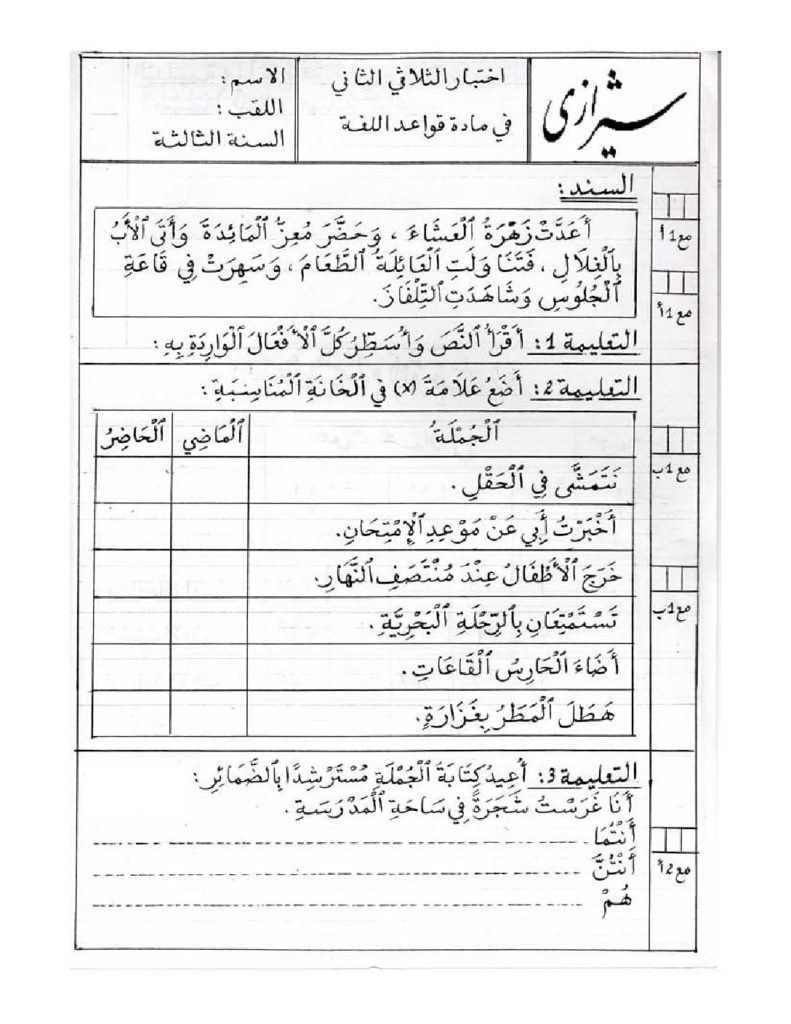 شيرازي
اختبار الثلاثي الثاني
في مادة قواعد اللغة
الاسم:
اللقب:
السنة الثالثة
السند:
أَعَدَّتْ زَهْرَةُ الْعَشَاءَ ، وَحَضَّرَ مُعِزُّ الْمَائِدَةَ وَأَتَى الْأَبُ
بِالْغِلَالِ ، فَتَنَاوَلَتِ الْعَائِلَةُ الطَّعَامَ ، وَسَهِرَتْ فِي قَاعَةِ
الْجُلُوسِ وَشَاهَدَتِ التِّلْفَازَ.
مع1أ
مع1أ
التعليمة 1: أَقْرَأُ النَّصَ وَأُسَطِّرُ كُلَّ الْأَفْعَالَ الْوَارِدَةِ بِهِ:
التعليمة 2: أَضَعُ عَلَامَةَ (x) فِي الْخَانَةِ الْمُنَاسِبَةِ:
الْجُمْلَةُ الْمَاضِي الْحَاضِرُ
مع1ب
نَتَمَشَّى فِي الْحَقْلِ .
أَخْبَرْتُ أَبِي عَنْ مَوْعِدِ الْإِمْتِحَانِ.
خَرَجَ الْأَطْفَالُ عِنْدَ مُنْتَصَفِ النَّهَارِ.
مع1ب
تَسْتَمْتِعَانِ بِالرِّحْلَةِ الْبَحْرِيَّةِ .
أَضَاءَ الْحَارِسُ الْقَاعَاتِ .
هَطَلَ الْمَطَرُ بِغَزَارَةٍ.
التعليمة 3: أُعِيدُ كِتَابَةَ الْجُمْلَةِ مُسْتَرْشِدًا بِالضَّمَائِرِ:
أَنَا غَرَسْتُ شَجَرَةً فِي سَاحَةِ الْمَدْرَسَةِ .
أَنْتُمَا
أَنْتُنَّ
هُمْ
مع2أ